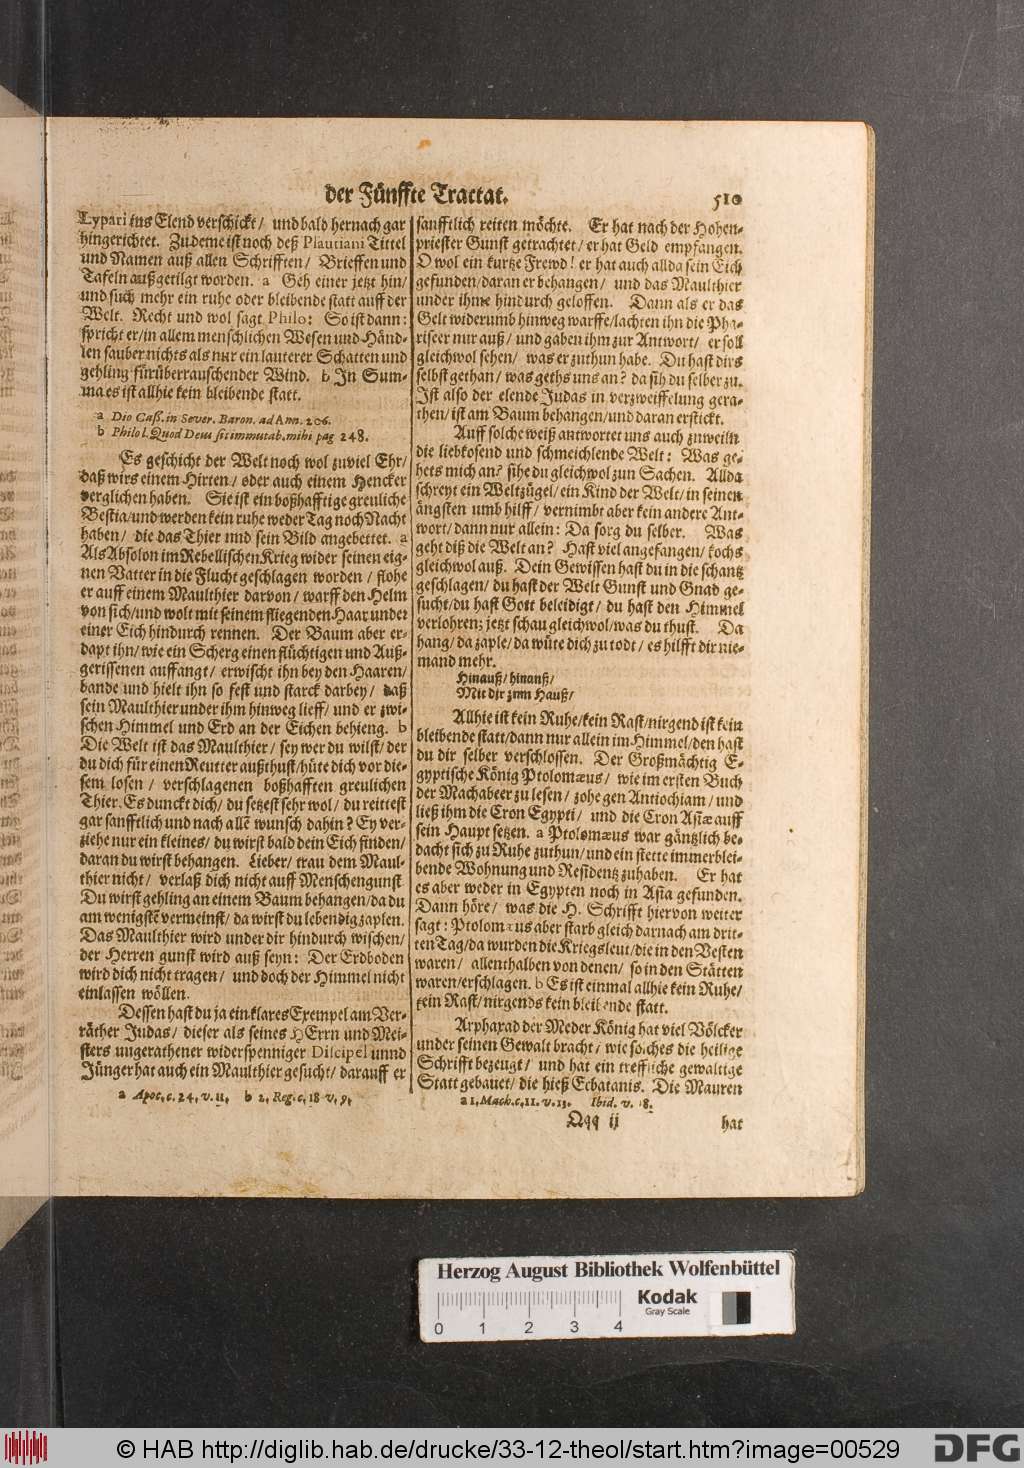 der Fünffte Tractat.
510
Lypari ins Elend verschickt / und bald hernach gar
hingerichtet. Zu deme ist noch deß Plautiani Tittel
und Namen auß allen Schrifften / Brieffen und
Tafeln außgetilgt worden. a Geh einer jetzt hin /
und such mehr ein ruhe oder bleibende statt auff der
Welt. Recht und wol sagt Philo: So ist dann:
spricht er / in allem menschlichen Wesen und Händ-
len sauber nichts als nur ein lauterer Schatten und
gehling fürüberrauschender Wind. b In Sum-
ma es ist allhie kein bleibende statt.
a Dio Cass. in Sever. Baron. ad Ann. 206.
b Philo l. Quod Deus sit immutab. mihi pag 248.
Es geschicht der Welt noch wol zuviel Ehr /
daß wirs einem Hirten / oder auch einem Hencker
verglichen haben. Sie ist ein boßhafftige greuliche
Bestia / und werden kein ruhe weder Tag noch Nacht
haben / die das Thier und sein Bild angebettet. a
Als Absolon im Rebellischen Krieg wider seinen eig-
nen Vatter in die Flucht geschlagen worden / flohe
er auff einem Maulthier darvon / warff den Helm
von sich / und wolt mit seinem fliegenden Haar under
einer Eich hindurch rennen. Der Baum aber er-
dapt ihn / wie ein Scherg einen flüchtigen und Auß-
gerissenen auffangt / erwischt ihn bey den Haaren /
bande und hielt ihn so fest und starck darbey / daß
sein Maulthier under ihm hinweg lieff / und er zwi-
schen Himmel und Erd an der Eichen behieng. b
Die Welt ist das Maulthier / sey wer du wilst / der
du dich für einen Reutter außthust / hüte dich vor die-
sem losen / verschlagenen boßhafften greulichen
Thier. Es dunckt dich / du setzest sehr wol / du reittest
gar sanfftlich und nach allẽ wunsch dahin? Ey ver-
ziehe nur ein kleines / du wirst bald dein Eich finden /
daran du wirst behangen. Lieber / trau dem Maul-
thier nicht / verlaß dich nicht auff Menschengunst
Du wirst gehling an einem Baum behangen / da du
am wenigstẽ vermeinst / da wirst du lebendig zaplen.
Das Maulthier wird under dir hindurch wischen /
der Herren gunst wird auß seyn: Der Erdboden
wird dich nicht tragen / und doch der Himmel nicht
einlassen wöllen.
Dessen hast du ja ein klares Exempel am Ver-
räther Judas / dieser als seines HErrn und Mei-
sters ungerathener widerspenniger Discipel unnd
Jünger hat auch ein Maulthier gesucht / darauff er
a Apoc. c. 24. v. 11. b 2. Reg. c. 18 v. 9.
sanfftlich reiten möchte. Er hat nach der Hohen-
priester Gunst getrachtet / er hat Geld empfangen.
O wol ein kurtze Frewd! er hat auch allda sein Eich
gefunden / daran er behangen / und das Maulthier
under ihme hindurch geloffen. Dann als er das
Gelt widerumb hinweg warffe / lachten ihn die Pha-
riseer nur auß / und gaben ihm zur Antwort / er soll
gleichwol sehen / was er zuthun habe. Du hast dirs
selbst gethan / was geths uns an? da sih du selber zu.
Ist also der elende Judas in verzweiffelung gera-
then / ist am Baum behangen / und daran erstickt.
Auff solche weiß antwortet uns auch zuweiln
die liebkosend und schmeichlende Welt: Was ge-
hets mich an? sihe du gleichwol zun Sachen. Allda
schreyt ein Weltzügel / ein Kind der Welt / in seinen
ängsten umb hilff / vernimbt aber kein andere Ant-
wort / dann nur allein: Da sorg du selber. Was
geht diß die Welt an? Hast viel angefangen / kochs
gleichwol auß. Dein Gewissen hast du in die schantz
geschlagen / du hast der Welt Gunst und Gnad ge-
sucht / du hast Gott beleidigt / du hast den Himmel
verlohren; jetzt schau gleichwol / was du thust. Da
hang / da zaple / da wüte dich zu todt / es hilfft dir nie-
mand mehr.
Hinauß / hinauß /
Mit dir zum Hauß /
Allhie ist kein Ruhe / kein Rast / nirgend ist kein
bleibende statt / dann nur allein im Himmel / den hast
du dir selber verschlossen. Der Großmächtig E-
gyptische König Ptolomæus / wie im ersten Buch
der Machabeer zu lesen / zohe gen Antiochiam / und
ließ ihm die Cron Egypti / und die Cron Asiæ auff
sein Haupt setzen. a Ptolomæus war gäntzlich be-
dacht sich zu Ruhe zuthun / und ein stette immerblei-
bende Wohnung und Residentz zuhaben. Er hat
es aber weder in Egypten noch in Asia gefunden.
Dann höre / was die H. Schrifft hiervon weiter
sagt: Ptolomæus aber starb gleich darnach am drit-
ten Tag / da wurden die Kriegsleut / die in den Vesten
waren / allenthalben von denen / so in den Stätten
waren / erschlagen. b Es ist einmal allhie kein Ruhe /
kein Rast / nirgends kein bleibende statt.
Arphaxad der Meder König hat viel Völcker
under seinen Gewalt bracht / wie solches die heilige
Schrifft bezeugt / und hat ein treffliche gewaltige
Statt gebauet / die hieß Ecbatanis. Die Mauren
a 1. Mach. c. 11. v. 13. Ibid. v. 18.
Qqq ij
hat
Herzog August Bibliothek Wolfenbüttel
0 1 2 3 4
Kodak
Gray Scale
© HAB http://diglib.hab.de/drucke/33-12-theol/start.htm?image=00529
DFG